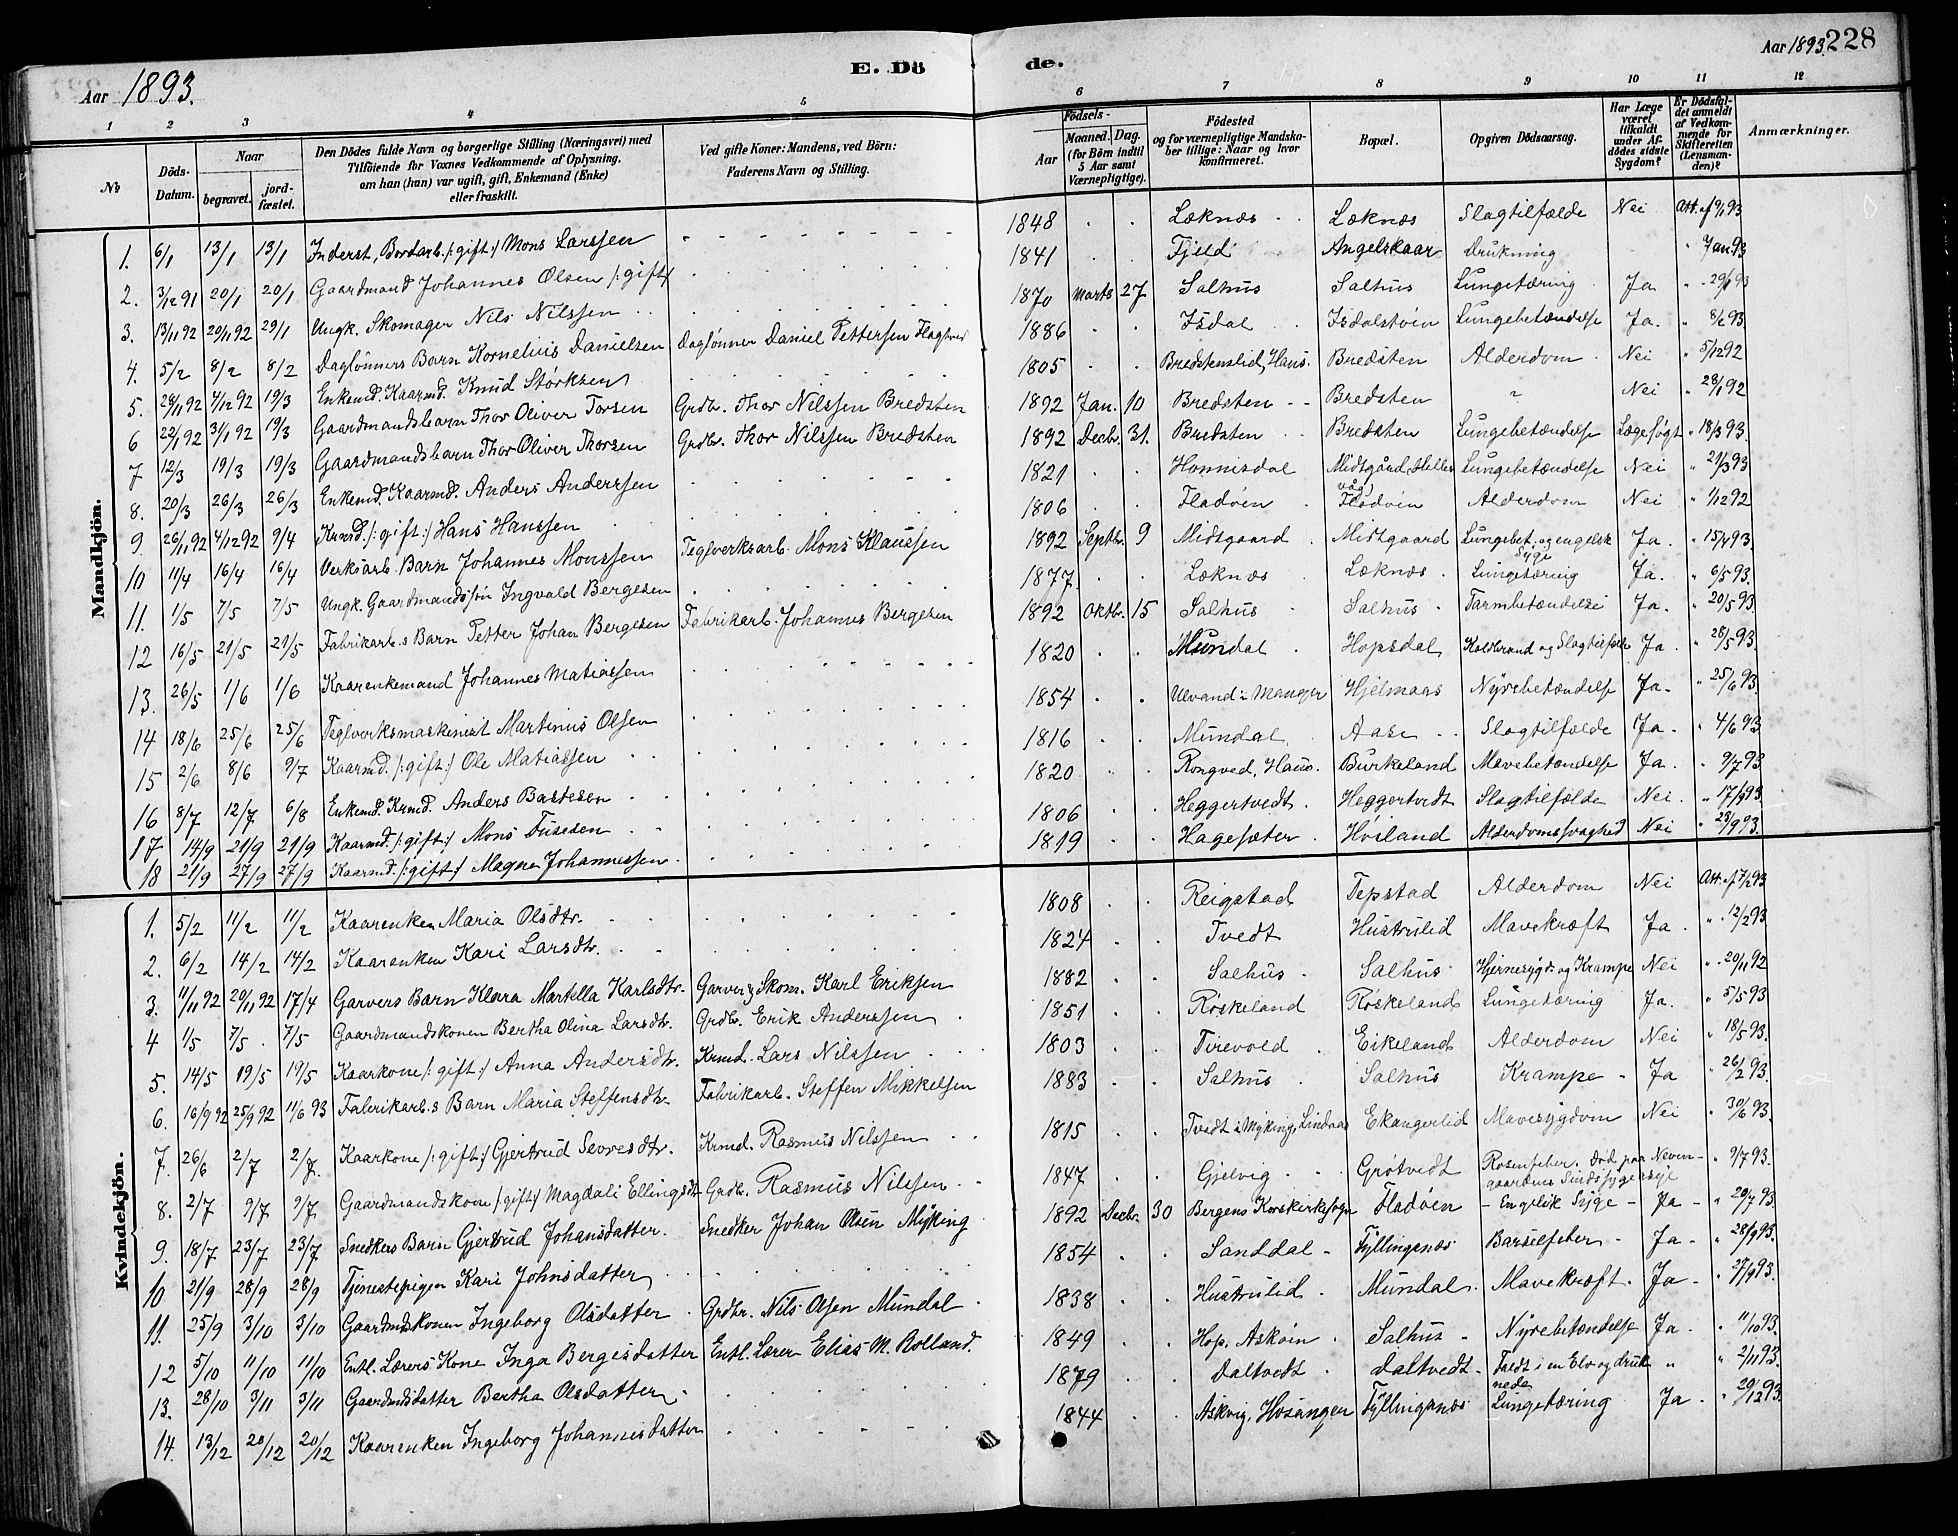 Aar 1893.
E. Dö
de.
Aar 1893. 228
1 2 3 4 5 6 7 8 9 10 11 12
No
Döds-Datum.
Naar
begravet.
jord-fæstet.
Den Dödes fulde Navn og borgerlige Stilling (Næringsvei) med
Tilföiende for Voxnes Vedkommende af Oplysning,
om han (hun) var ugift, gift, Enkemand (Enke)
eller fraskilt.
Ved gifte Koner: Mandens, ved Börn:
Faderens Navn og Stilling.
Födsels-
Aar
Maaned. Dag.
(for Börn indtil 5 Aar samt Værnepligtige).
Födested
og for værnepligtige Mandska-
ber tillige: Naar og hvor
konfirmeret.
Bopæl.
Opgiven Dödsaarsag.
Har Læge været tilkaldt under Afdödes sidste Sygdom?
Er Dödsfaldet anmeldt af Vedkommende for Skifteretten (Lensmanden)?
Anmærkninger.
Mandkjön.
1. 6/1 13/1 13/1 Inderst, Bordarb. /: gift :/ Mons Larssen 1848 Læknes Læknes Slagtilfælde Nei Att. af 9/1 93
2. 3/12 91 20/1 20/1 Gaardmand Johannes Olsen /: gift/ 1841 Fjeld Angelskaar Drukning " Jan 93
3. 13/11 92 20/11 92 29/1 Ungk. Skomager Nils Nilssen 1870 Marts 27 Salhus Salhus Lungetæring Ja " 29/1 93
4. 5/2 8/2 8/2 Daglönners Barn Kornelius Danielsen Daglönner Daniel Pettersen 1886 Isdal Isdalstöen Lungebetændelse Ja. " 8/2 93
5. 28/11 92 4/12 92 19/3 Enkemd. Kaarmd. Knud Störksen 1805 Bredstenslid, Haus. Bredsten Alderdom Nei " 5/12 92
6 22/1 92 31/1 92 19/3 Gaardmandsbarn Thor Oliver Torsen Grdbr. Thor Nilssen Bredsten 1892 Jan. 10 Bredsten Bredsten " Nei " 28/1 92
7 12/3 19/3 19/3 Gaardmandsbarn Thor Oliver Thorsen Grdbr. Thor Nilssen Bredsten 1892 Decbr. 31. Bredsten Bredsten Lungebetændelse Lægesögt " 18/3 93.
8. 20/3 26/3 26/3 Enkemd. Kaarmd. Anders Anderssen 1821 Honnisdal Midtgård, Hellevåg) Lungebetændelse Nei " 21/3 93
9 26/11 92 4/12 92 9/4 Krmd. /: gift :/ Hans Hanssen 1806 Fladöen Fladöen Alderdom Nei " 1/12 92
10 11/4 16/4 16/4 Verksarb. Barn Johannes Monssen Teglverksarb. Mons Klaussen 1892 Septbr. 9 Midtgaard Midtgaard Lungebet. og engelsk Syge Ja. " 15/4 93.
11. 1/5 7/5 7/5 Ungk. Gaardmandssön Ingvald Bergesen 1877 Læknes Læknes Lungetæring Ja. " 6/5 93.
12 16/5 21/5 21/5 Fabrikarb.s Barn Petter Johan Bergesen Fabrikarb. Johannes Bergesen 1892 Oktbr. 15 Salhus Salhus Tarmbetændelse Ja. " 20/5 93.
13. 26/5 1/6 1/6 Kaarenkemand Johannes Matiassen 1820 Mundal Hopsdal Koldbrand og Slagtilfælde Ja. " 28/5 93.
14 18/6 25/6 25/6 Teglverksmaskinist Martinus Olsen 1854 Ulvand i Manger Hjelmaas Nyrebetændelse Ja. " 25/6 93.
15 2/6 8/6 9/7 Kaarmd. /: gift :/ Ole Matiassen 1816 Mundal Aase Slagtilfælde Ja. " 4/6 93.
16 8/7 12/7 6/8 Enkemd. Krmd. Anders Bastesen 1820 Rongved, Haus. Burkeland Mavebetændelse Ja. " 9/7 93
17 14/9 21/9 21/9 Kaarmd. /: gift :/ Mons Tusesen 1806 Heggertvedt. Heggertvedt Slagtilfælde Nei. " 17/9 93.
18 21/9 27/9 27/9 Kaarmd. /: gift :/ Magne Johannessen 1819 Hagesæter Hösland Alderdomssvaghed Nei " 23/9 93.
Kvindekjön.
1. 5/2 11/2 11/2 Kaarenken Maria Olsdtr. 1808 Reigstad Tepstad Alderdom Nei Att. af 7/2 93
2. 6/2 14/2 14/2 Kaarenken Kari Larsdtr. 1824 Tvedt Hustrulid Mavekræft Ja. " 12/2 93
3. 11/11 92 20/11 92 17/4 Garvers Barn Klara Martella Karlsdtr. Garver & Skom. Karl Eriksen 1882 Salhus Salhus Hjernesygd. og Krampe Nei " 20/11 92
4 1/5 7/5 7/5 Gaardmandskonen Bertha Olina Larsdtr. Grdbr. Erik Anderssen 1851 Röskeland Röskeland Lungetæring Ja. " 5/5 93
5. 14/5 19/5 19/5 Kaarkone /: gift :/ Anna Andersdtr. Krmd. Lars Nilssen 1803 Tirevold Eikeland Alderdom Nei " 18/5 93.
6. 16/9 92 25/9 92 11/6 93 Fabrikarb.s Barn Maria Steffensdtr. Fabrikarb. Steffen Mikkelsen 1883 Salhus Salhus Krampe Ja " 26/2 93.
7. 26/6 2/7 2/7. Kaarkone /: gift :/ Gjertrud Sevresdtr. Krmd. Rasmus Nilssen 1815 Tvedt i Myking, Lindaas Ekangerlid Mavesygdom Nei " 30/6 93.
8. 2/7 9/7 9/7. Gaardmandskone /: gift :/ Magdali Ellingsdtr. Grdbr. Rasmus Nilssen 1847 Gjelvig Grötvedt Rosenfeber. Död paa Nevengaardens Sindssygeasyl " 9/7 93.
9 18/7 23/7 23/7 Snedkers Barn Gjertrud Johansdatter. Snedker Johan Olsen Myking 1892 Decbr. 30 Bergens Korskirksogn Fladöen Engelsk Syge Ja " 20/7 93.
10 21/9 28/9 28/9 Tjenestepigen Kari Johnsdatter 1854 Sanddal Fyllingsnes Barselfeber Ja " 28/9 93.
11. 25/9 3/10 3/10 Gaardmdskonen Ingeborg Olsdatter Grdbr. Nils Olsen Mundal 1838 Hustrulid. Mundal. Mavekræft. Ja " 27/9 93.
12 5/10 11/10 11/10 Entl. Lærers Kone Inga Bergesdatter Entl. Lærer Elias M. Rolland. 1849 Hop, Asköen Salhus Nyrebetændelse Ja " 11/10 93.
13. 28/10 3/11 3/11 Gaardmdsdatter Bertha Olsdatter 1879 Daltvedt Daltvedt Faldt i en Elv og druknede " " 2/11 93.
14. 13/12 20/12 20/12 Kaarenken Ingeborg Johannesdatter 1844 Askvig, Hosanger Fyllingsnes Lungetæring Ja " 20/12 93.